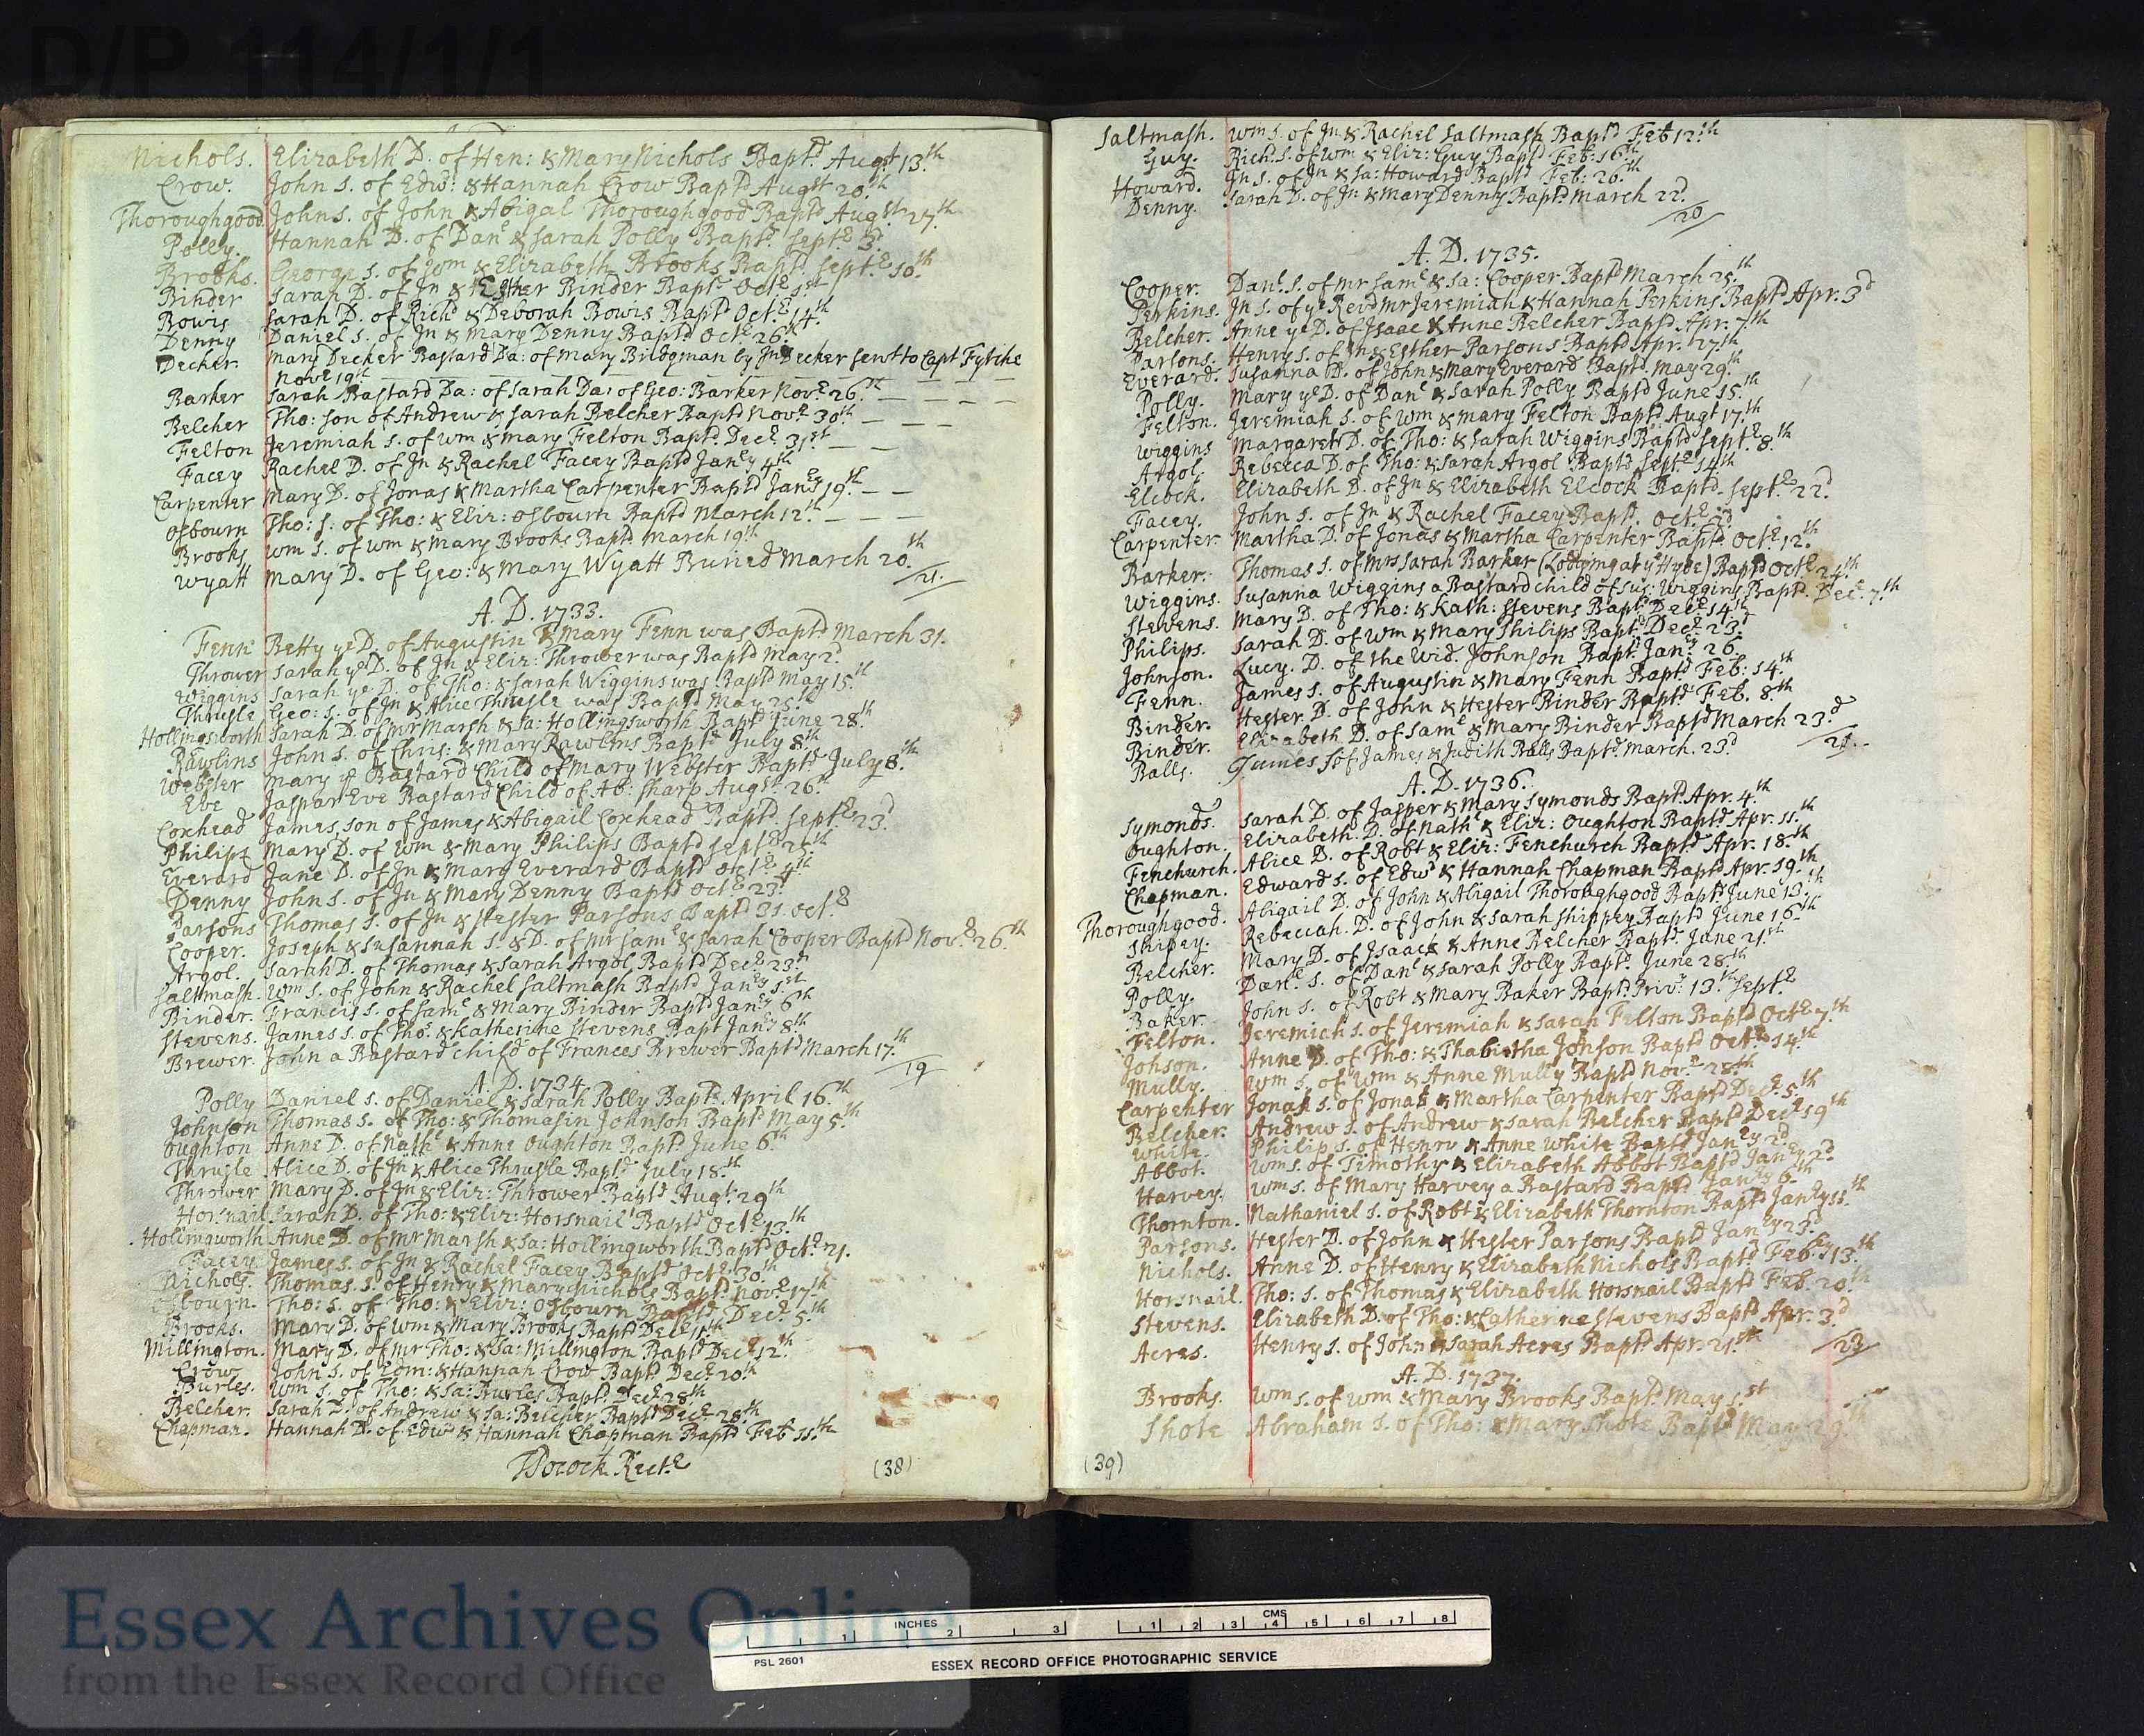 D/P 114/1/1
Nichols. Elizabeth D. of Hen: & Mary Nichols Bapt.d Augst 13.th
Crow. John s. of Edw: & Hannah Crow Bapt.d Augst 20.th
Thoroughgood John s. of John & Abigal Thoroughgood Bapt.d Augst 27.th
Polly. Hannah D. of Danl & Sarah Polly Bapt.d Septr 3d
Brooks. George s. of Wm & Elizabeth Brooks Bapt.d Septr 10.th
Binder Sarah D. of Jn & Esther Binder Bapt.d Octr 1st
Bowis Sarah D. of Richd & Deborah Bowis Bapt.d Octr 14.th
Denny Daniel s. of Jn & Mary Denny Bapt.d Octr 26.th
Decker. Mary Decker Bastard Da: of Mary Bridgman by Jn Decker sent to Capt Fytche
Novr 19th
Barker Sarah Bastard Da: of Sarah Da: of Geo: Barker Novr 26.th
Belcher Tho: son of Andrew & Sarah Belcher Bapt.d Novr 30th
Felton Jeremiah s. of Wm & Mary Felton Bapt.d Decr 31st
Facey Rachel D. of Jn & Rachel Facey Bapt.d Jan.y 4th
Carpenter Mary D. of Jonas & Martha Carpenter Bapt.d Jan.y 19.th
Osbourn Tho: s. of Tho: & Eliz: Osbourn Bapt.d March 12.th
Brooks Wm s. of Wm & Mary Brooks Bapt.d March 19th
Wyatt Mary D. of Geo: & Mary Wyatt Buried March 20.th
/21./
A.D. 1733.
Fenn Betty ye D. of Augustin & Mary Fenn was Bapt.d March 31.
Thrower Sarah ye D. of Jn & Eliz: Thrower was Bapt.d May 2d
Wiggins Sarah ye D. of Tho: & Sarah Wiggins was Bapt.d May 15.th
Thrusle Geo: s. of Jn & Alice Thrusle was Bapt.d May 25.th
Hollingsworth Sarah D. of mr Marsh & Sa: Hollingsworth Bapt.d June 28.th
Rawlins John s. of Chris: & Mary Rawlins Bapt.d July 8th
Webster Mary ye Bastard Child of Mary Webster Bapt.d July 8.th
Eve Jaspar Eve Bastard Child of Ab: Sharp Augst 26.th
Coxhead James son of James & Abigail Coxhead Bapt.d Septr 23d
Philips Mary D. of Wm & Mary Philips Bapt.d Septr
Everard Jane D. of Jn & Mary Everard Bapt.d Octr 4th
Denny John s. of Jn & Mary Denny Bapt.d Octr 23d
Parsons Thomas s. of Jn & Hester Parsons Bapt.d 31. Octr
Cooper. Joseph & Susannah s. & D. of mr Saml & Sarah Cooper Bapt.d Novr 26.th
Argol. Sarah D. of Thomas & Sarah Argol Bapt.d Decr 23d
Saltmash. Wm s. of John & Rachel Saltmash Bapt.d Jan.y 1st
Binder. Francis s. of Saml & Mary Binder Bapt.d Jan.y 6th
Stevens. James s. of Tho: & Katherine Stevens Bapt Jan.y 8th
Brewer. John a Bastard child of Frances Brewer Bapt.d March 17.th
/19
A.D. 1734.
Polly Daniel s. of Daniel & Sarah Polly Bapt.d April 16.th
Johnson Thomas s. of Tho: & Thomasin Johnson Bapt.d May 5.th
Oughton Anne D. of Nathl & Anne Oughton Bapt.d June 6th
Thrusle Alice D. of Jn & Alice Thrusle Bapt.d July 18.th
Thrower Mary D. of Jn & Eliz: Thrower Bapt.d Augt 29th
Horsnail Sarah D. of Tho: & Eliz: Horsnail Bapt.d Octr 13.th
Hollingworth Anne D. of mr Marsh & Sa: Hollingworth Bapt.d Octr 21.
Facey James s. of Jn & Rachel Facey Bapt.d Octr 30.th
Nichols. Thomas s. of Henry & Mary Nichols Bapt.d Novr 17th
Osbourn. Tho: s. of Tho: & Eliz: Osbourn Bapt.d Decr 5.th
Brooks. Mary D. of Wm & Mary Brooks Bapt.d Decr
Millington. Mary D. of mr Tho: & Sa: Millington Bapt.d Decr 12.th
Crow John s. of Edm: & Hannah Crow Bapt.d Decr 20th
Burles. Wm s. of Tho: & Sa: Burles Bapt.d Decr 28.th
Belcher. Sarah D. of Andrew & Sa: Belcher Bapt.d Decr 28.th
Chapman. Hannah D. of Edwd & Hannah Chapman Bapt.d Feb 11.th
TPocock Rectr
(38)
Saltmash. Wm s. of Jn & Rachel Saltmash Bapt.d Feb 12.th
Guy. Richd s. of Wm & Eliz: Guy Bapt.d Feb: 16.th
Howard. Jn s. of Jn & Sa: Howard Bapt.d Feb: 26.th
Denny. Sarah D. of Jn & Mary Denny Bapt.d March 22d
/20/
A.D. 1735.
Cooper. Danl s. of mr Saml & Sa: Cooper Bapt.d March 25.th
Perkins. Jn s. of ye Revd mr Jeremiah & Hannah Perkins Bapt.d Apr. 3d
Belcher. Anne ye D. of Isaac & Anne Belcher Bapt.d Apr. 7.th
Parsons. Henry s. of Jn & Esther Parsons Bapt.d Apr. 27.th
Everard. Susanna D. of John & Mary Everard Bapt.d May 29.th
Polly. Mary ye D. of Danl & Sarah Polly Bapt.d June 15.th
Felton. Jeremiah s. of Wm & Mary Felton Bapt.d Augt 17.th
Wiggins Margaret D. of Tho: & Sarah Wiggins Bapt.d Septr 8.th
Argol. Rebecca D. of Tho: & Sarah Argol Bapt.d Septr 14th
Elcock. Elizabeth D. of Jn & Elizabeth Elcock Bapt.d Septr 22d
Facey. John s. of Jn & Rachel Facey Bapt.d Octr 2d
Carpenter. Martha D. of Jonas & Martha Carpenter Bapt.d Octr 12.th
Barker. Thomas s. of Mrs Sarah Barker (Lodging at ye Hyde) Bapt.d Octr 24th
Wiggins. Susanna Wiggins a Bastard child of Sus: Wiggins Bapt.d Decr 7.th
Stevens. Mary D. of Tho: & Kath: Stevens Bapt.d Decr 14.th
Philips. Sarah D. of Wm & Mary Philips Bapt.d Decr 23d
Johnson. Lucy. D. of the Wid. Johnson Bapt.d Jan.y 26.
Fenn. James s. of Augustin & Mary Fenn Bapt.d Feb: 14.th
Binder. Hester D. of John & Hester Binder Bapt.d Feb. 8.th
Binder. Elizabeth D. of Saml & Mary Binder Bapt.d March 23.d
Balls. James s of James & Judith Balls Bapt.d March. 23d
/21.
A.D. 1736.
Symonds. Sarah D. of Jasper & Mary Symonds Bapt.d Apr. 4.th
Oughton. Elizabeth. D. of Nathl & Eliz: Oughton Bapt.d Apr. 11.th
Fenchurch. Alice D. of Robt & Eliz: Fenchurch Bapt.d Apr. 18.th
Chapman. Edward s. of Edwd & Hannah Chapman Bapt.d Apr. 19.th
Thoroughgood. Abigail D. of John & Abigail Thoroughgood Bapt.d June 13.th
Shipey. Rebeccah. D. of John & Sarah Shippey Bapt.d June 16.th
Belcher. Mary D. of Isaack & Anne Belcher Bapt.d June 21.st
Polly. Danl s. of Danl & Sarah Polly Bapt.d June 28.th
Baker. John s. of Robt & Mary Baker Bapt.d Priv: 13.th Septr
Felton. Jeremich s. of Jeremiah & Sarah Felton Bapt.d Octr 7.th
Johson. Anne D. of Tho: & Thabitha Jonson Bapt.d Octr 14.th
Mully. Wm s. of Wm & Anne Mully Bapt.d Novr 28th
Carpenter Jonas s. of Jonas & Martha Carpenter Bapt.d Decr 5.th
Belcher. Andrew s. of Andrew & Sarah Belcher Bapt.d Decr 19th
White. Philip s. of Henry & Anne White Bapt.d Jan.y 2d
Abbot. Wm s. of Timothy & Elizabeth Abbot Bapt.d Jan.y 2d
Harvey. Wm s. of Mary Harvey a Bastard Bapt.d Jan.y 6.th
Thornton. Nathaniel s. of Robt & Elizabeth Thornton Bapt.d Jan.y 11.th
Parsons. Hester D. of John & Hester Parsons Bapt.d Jan.y 23d
Nichols. Anne D. of Henry & Elizabeth Nichols Bapt.d Feb.y 13.th
Horsnail. Tho: s. of Thomas & Elizabeth Horsnail Bapt.d Feb. 20th
Stevens. Elizabeth D. of Tho: & Catherine Stevens Bapt.d Apr. 3d
Acres. Henry s. of John & Sarah Acres Bapt.d Apr. 21st
/23/
A.D. 1737.
Brooks. Wm s. of Wm & Mary Brooks Bapt.d May 1.st
Shote Abraham s. of Tho: & Mary Shote Bapt.d May 29.th
(39)
Essex Archives Online
from the Essex Record Office
INCHES 1 2 3 CMS 1 2 3 4 5 6 7 8
PSL 2601
ESSEX RECORD OFFICE PHOTOGRAPHIC SERVICE